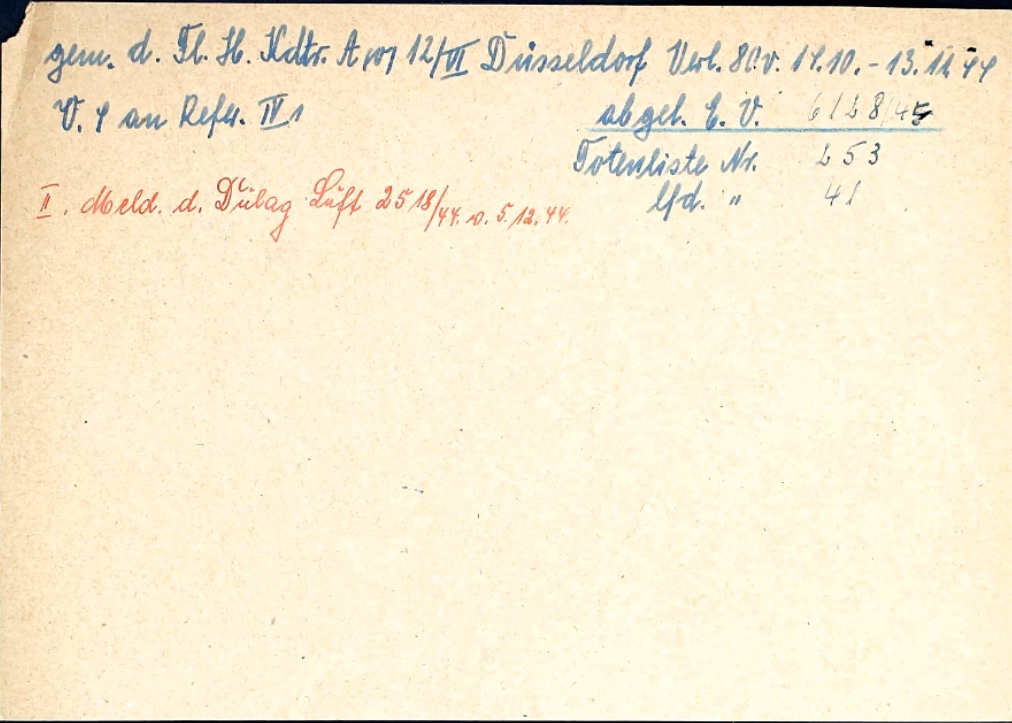 gem. d. Fl. H. Kdtr. A 107 12/VI Düsseldorf Verl. 80 v. 14.10. - 13.11.44
V. 4 an Refer. IV 1
abgel. E. V. 6128/45
Totenliste Nr. 253
lfd. " 41
II. Meld. d. Dulag Luft 2518/44. v. 5.12.44.